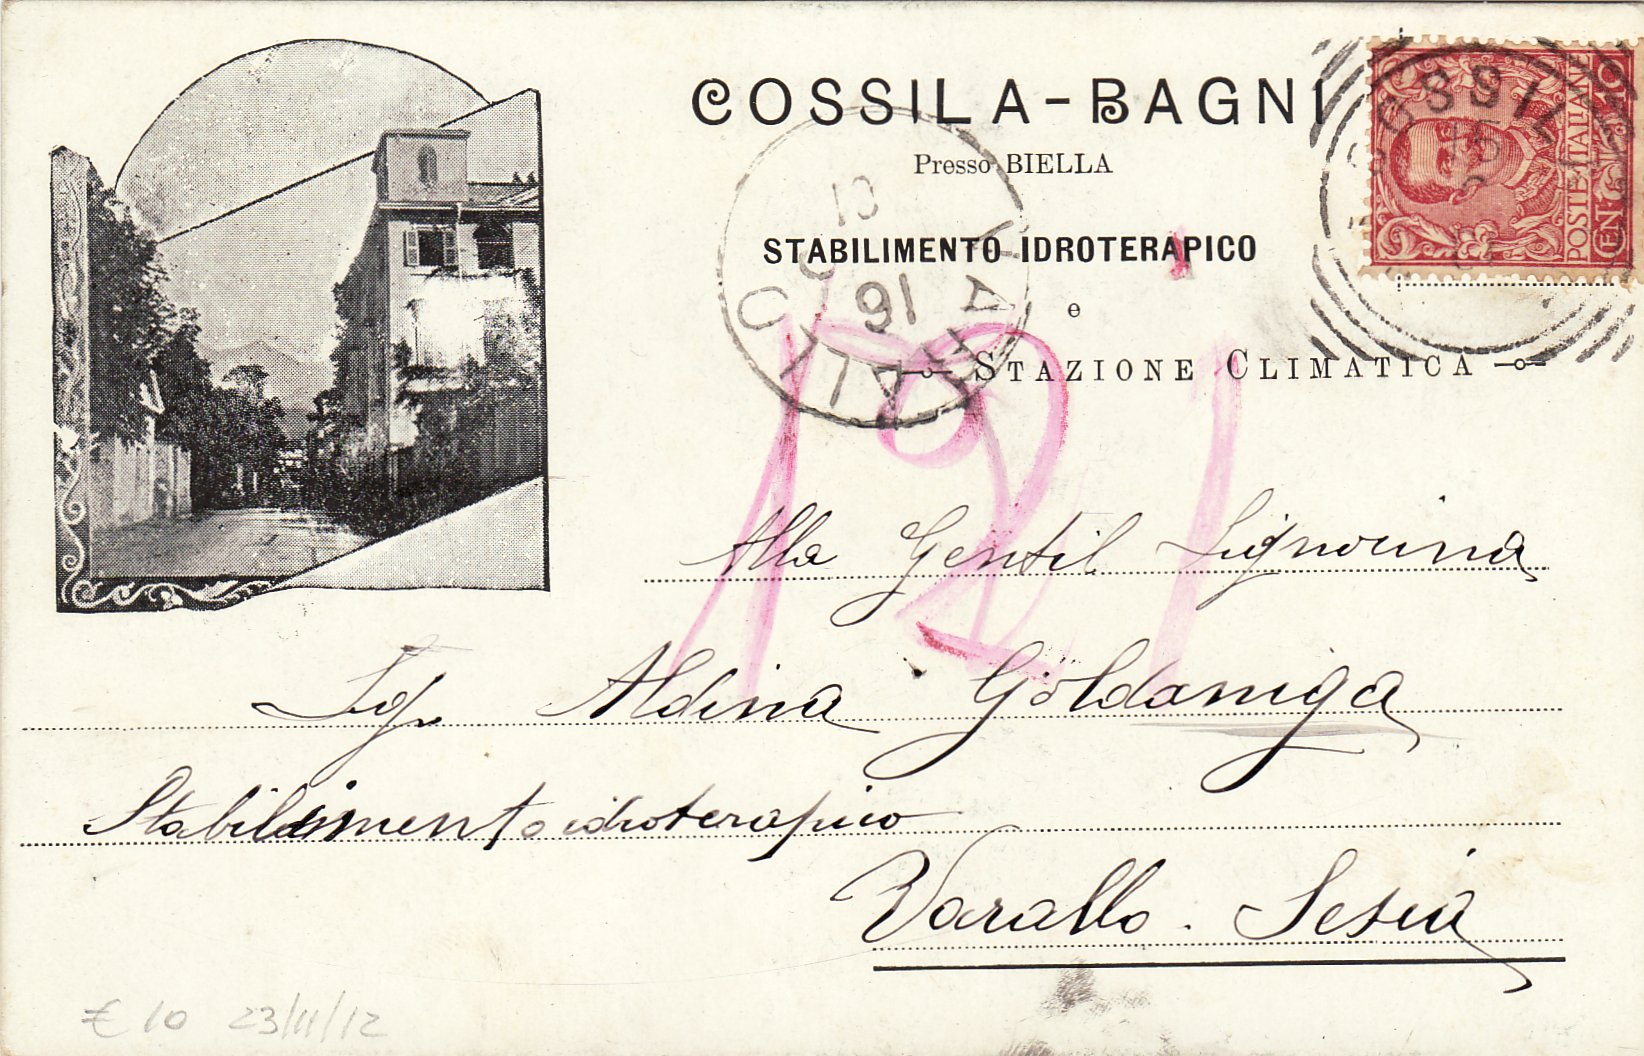 COSSILA-BAGNI
Presso BIELLA
STABILIMENTO IDROTERAPICO
e
STAZIONE CLIMATICA
COSSIL
POSTE ITALIANE
CENT. 10
VARALLO
16
01
121
Alla Gentil Signorina
Sig. Aldina Goldaniga
Stabilimento idroterapico
Varallo. Sesia
€ 10 23/11/12